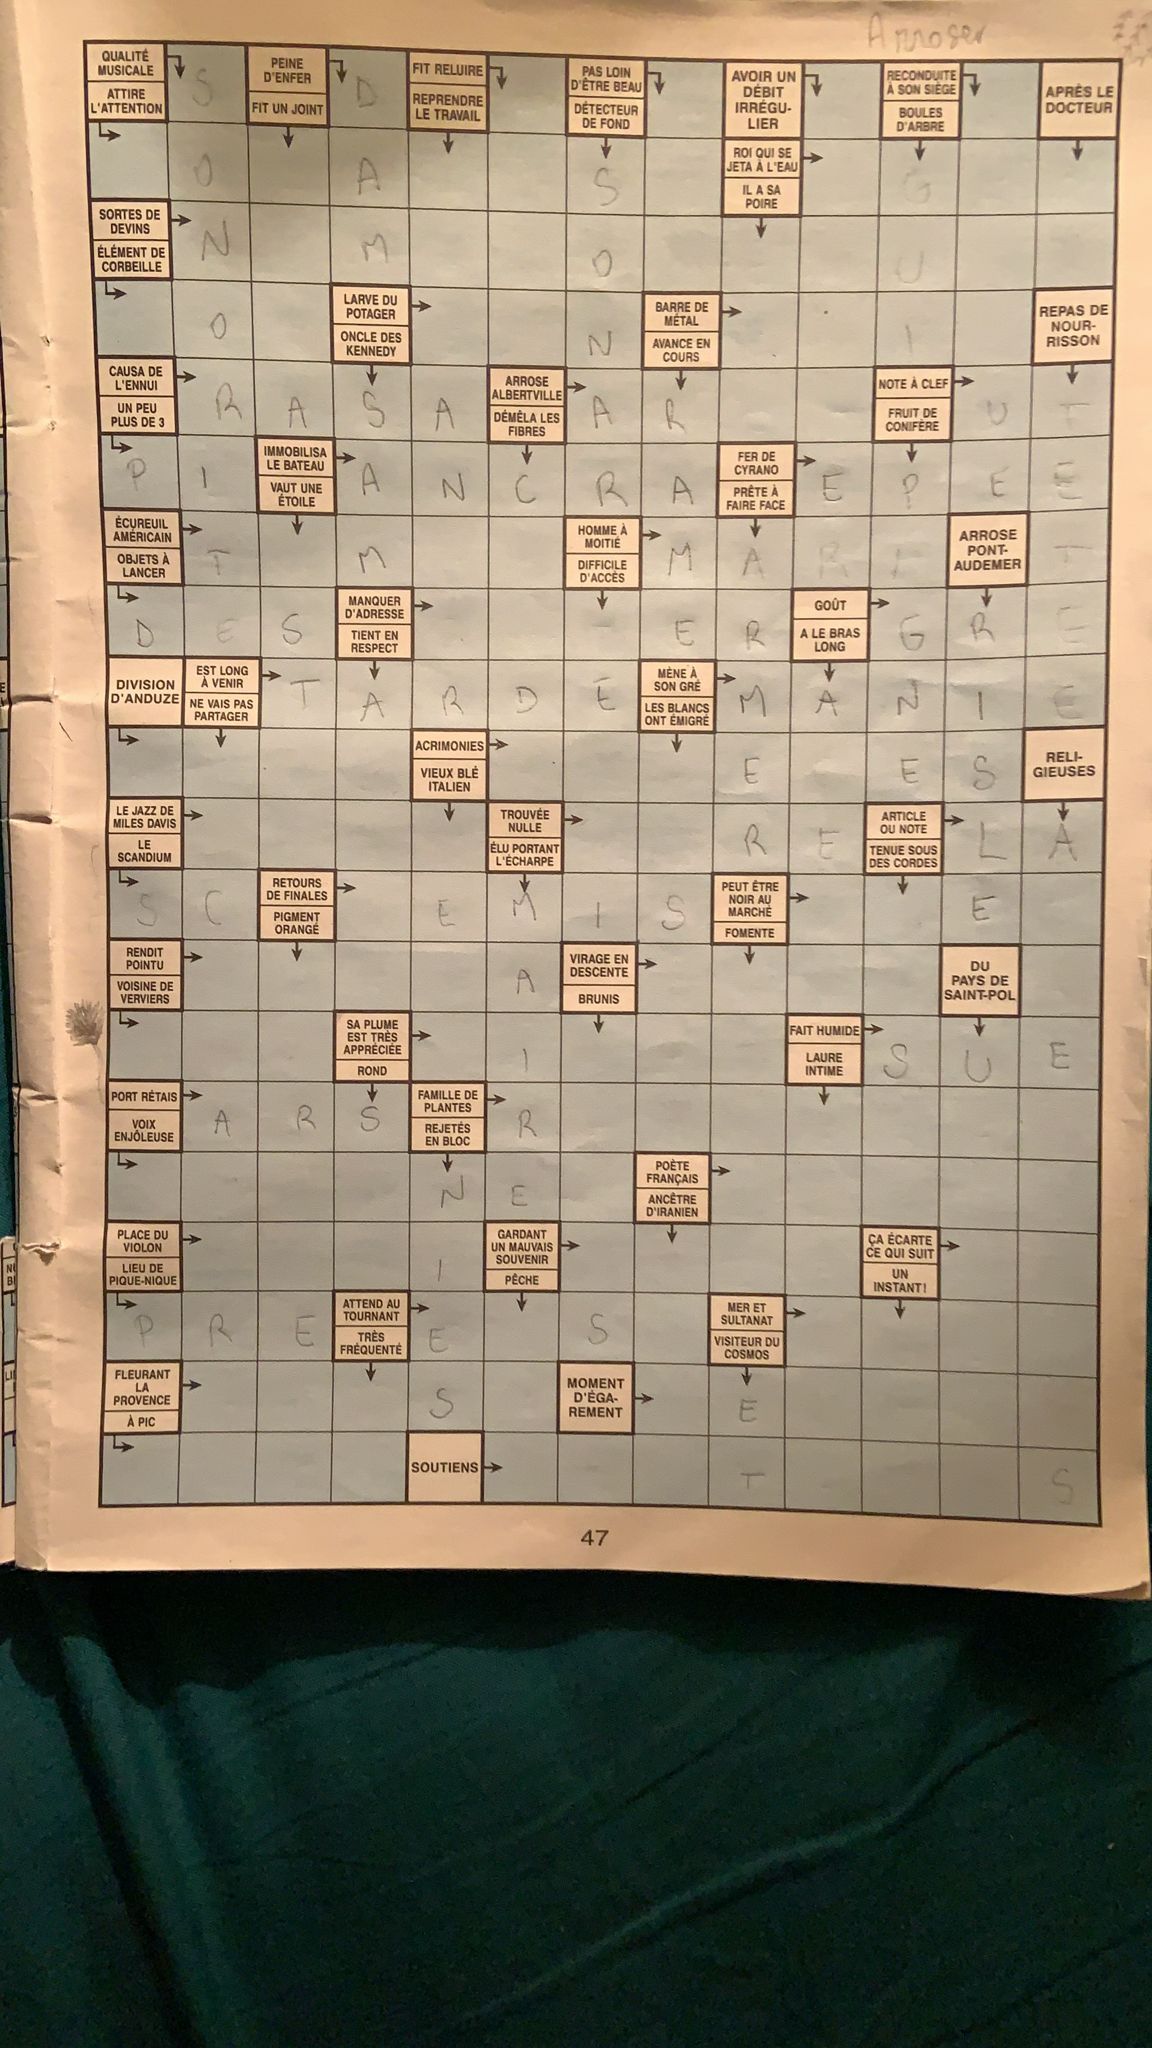 Arroser
QUALITÉ MUSICALE
ATTIRE L'ATTENTION
S
PEINE D'ENFER
FIT UN JOINT
D
FIT RELUIRE
REPRENDRE LE TRAVAIL
PAS LOIN D'ÊTRE BEAU
DÉTECTEUR DE FOND
AVOIR UN DÉBIT IRRÉGU-LIER
RECONDUITE À SON SIÈGE
BOULES D'ARBRE
APRÈS LE DOCTEUR
O A S
ROI QUI SE JETA À L'EAU
IL A SA POIRE
G
SORTES DE DEVINS
ÉLÉMENT DE CORBEILLE
N M O U
O
LARVE DU POTAGER
ONCLE DES KENNEDY
N
BARRE DE MÉTAL
AVANCE EN COURS
I
REPAS DE NOUR-RISSON
CAUSA DE L'ENNUI
UN PEU PLUS DE 3
R A S A
ARROSE ALBERTVILLE
DÉMÊLA LES FIBRES
A R
NOTE À CLEF
FRUIT DE CONIFÈRE
U T
P I
IMMOBILISA LE BATEAU
VAUT UNE ÉTOILE
A N C R A
FER DE CYRANO
PRÊTE À FAIRE FACE
E P E E
ÉCUREUIL AMÉRICAIN
OBJETS À LANCER
T M
HOMME À MOITIÉ
DIFFICILE D'ACCÈS
M A R I
ARROSE PONT-AUDEMER
T
D E S
MANQUER D'ADRESSE
TIENT EN RESPECT
E R
GOÛT
A LE BRAS LONG
G R E
DIVISION D'ANDUZE
EST LONG À VENIR
NE VAIS PAS PARTAGER
T A R D E
MÈNE À SON GRÉ
LES BLANCS ONT ÉMIGRÉ
M A N I E
ACRIMONIES
VIEUX BLÉ ITALIEN
E E S
RELI-GIEUSES
LE JAZZ DE MILES DAVIS
LE SCANDIUM
TROUVÉE NULLE
ÉLU PORTANT L'ÉCHARPE
R E
ARTICLE OU NOTE
TENUE SOUS DES CORDES
L A
S C
RETOURS DE FINALES
PIGMENT ORANGÉ
E M I S
PEUT ÊTRE NOIR AU MARCHÉ
FOMENTE
E
RENDIT POINTU
VOISINE DE VERVIERS
A
VIRAGE EN DESCENTE
BRUNIS
DU PAYS DE SAINT-POL
SA PLUME EST TRÈS APPRÉCIÉE
ROND
I
FAIT HUMIDE
LAURE INTIME
S U E
PORT RÉTAIS
VOIX ENJÔLEUSE
A R S
FAMILLE DE PLANTES
REJETÉS EN BLOC
R
N E
POÈTE FRANÇAIS
ANCÊTRE D'IRANIEN
PLACE DU VIOLON
LIEU DE PIQUE-NIQUE
I
GARDANT UN MAUVAIS SOUVENIR
PÊCHE
ÇA ÉCARTE CE QUI SUIT
UN INSTANT !
P R E
ATTEND AU TOURNANT
TRÈS FRÉQUENTÉ
E S
MER ET SULTANAT
VISITEUR DU COSMOS
FLEURANT LA PROVENCE
À PIC
S
MOMENT D'ÉGA-REMENT
E
SOUTIENS
T S
47